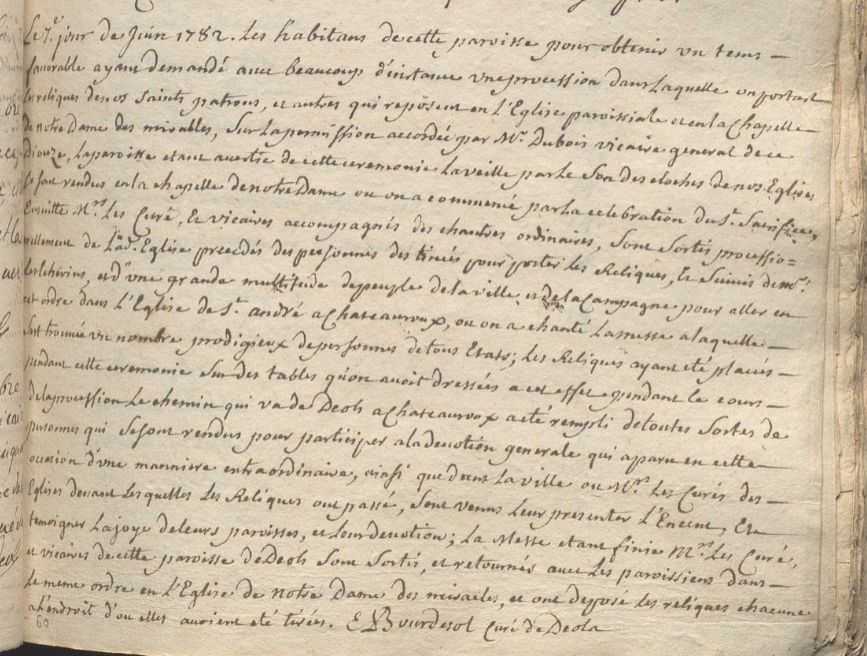 Le 7.e jour de juin 1782. Les habitans de cette paroisse pour obtenir un tems
favorable ayant demandé avec beaucoup d'instance une procession dans Laquelle on portast
les reliques de nos Saints patrons, et autres qui reposent en L'Eglise paroissiale et en la Chapelle
de notre Dame des mirables, Sur La permission accordée par Mr. Dubois vicaire general de ce
Diouze, La paroisse etant avertie de cette ceremonie La veille par le Son des cloches de nos Eglises
se sont rendus en la chapelle de notre Dame ou on a commencé par la celebration du St. Sacrifice,
Ensuitte Mrs. Les Curé, Et vicaires accompagnés des chantres ordinaires, Sont Sortis processio=
nellement de Lad. Eglise precedés des personnes destinées pour porter les Reliques, Et Suivis de
et d'une grande multitude de peuple de la ville et de la Campagne pour aller en
cet ordre dans L'Eglise de St. andré a Chateauroux, ou on a chanté La messe a laquelle
s'est trouvée un nombre prodigieux de personnes de tous Etats; Les Reliques ayant eté placées
pendant cette ceremonie Sur des tables qu'on avoit dressées a cet effet pendant le cours
de la procession Le chemin qui va de Deols a Chateauroux a eté rempli de toutes Sortes de
personnes qui Se sont rendus pour participer a la devotion generale qui a paru en cette
occasion d'une manniere extraordinaire, ainsi que dans La ville ou Mrs. Les Curés des
Eglises devant Lesquelles Les Reliques ont passé, Sont venus Leur presenter L'Encens, Et
temoigner La joye de leurs paroisses, et Leur devotion; La Messe etant finie Mrs. Les Curé,
et vicaires de cette paroisse de Deols Sont Sortis, et retournés avec Les paroissiens dans
Le meme ordre en L'Eglise de notre Dame des miracles, et ont deposé les reliques chacune
a L'endroit d'ou elles avoient eté tirées. E Bourdesol Curé de Deols
60